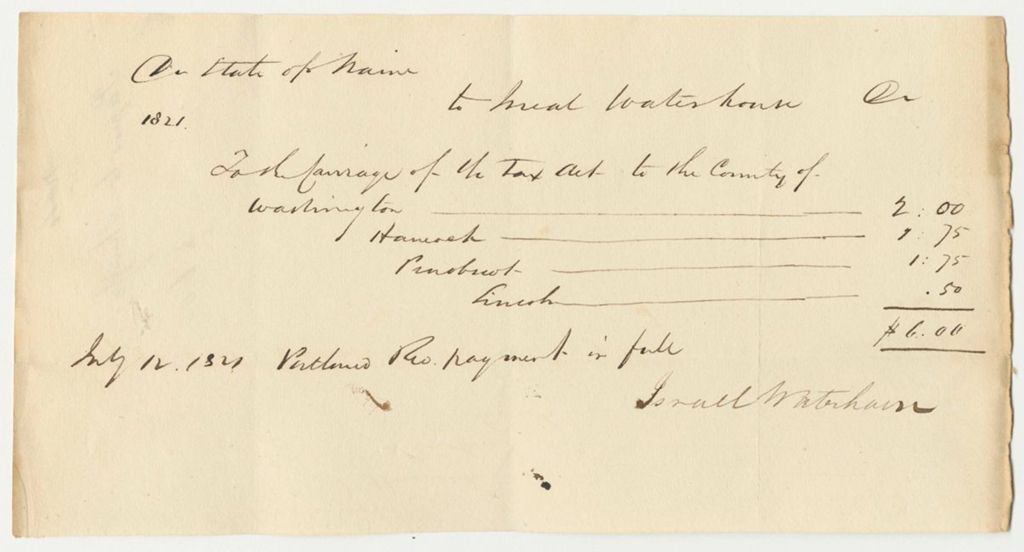 Dr State of Maine
to Isreal Waterhouse Dr
1821.
To the Carriage of the Tax Act to the County of
Washington 2:00
Hancock 1:75
Penobscot 1:75
Lincoln .50
$6.00
July 12. 1821 Portland Rec. payment in full
Israell Waterhouse